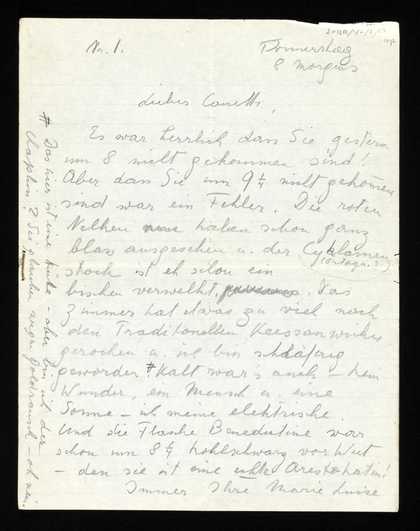 Nr. 1.
Donnerstag
8 Morgens
Liebes Canetti,
Es war herrlich dass Sie gestern
um 8 nicht gekommen sind!
Aber dass Sie um 9¼ nicht gekommen
sind war ein Fehler. Die roten
Nelken haben schon ganz
blass ausgesehen u. der Cyklamen
stock ist eh schon ein
bischen verwelkt, Das
Zimmer hat etwas zu viel nach
den Traditionellen
gerochen u. ich bin schläfrig
geworden # Kalt war's auch – kein
Wunder, ein Mensch u. eine
Sonne – ich meine elektrische.
Und die Flasche Benedictine war
schon um 8¼ kohlschwarz vor Wut
– denn sie ist eine echte Aristokratin!
Immer Ihre Marie Luise
# Das hier ist eine – aber bin ich der
Chaplin? Sie glauben wegen Goldrausch – oh nein.